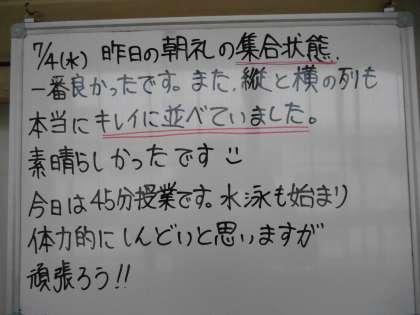 7/4(水) 昨日の朝礼の集合状態、
一番良かったです。また、縦と横の列も
本当にキレイに並べていました。
素晴らしかったです
今日は45分授業です。水泳も始まり
体力的にしんどいと思いますが
頑張ろう!!